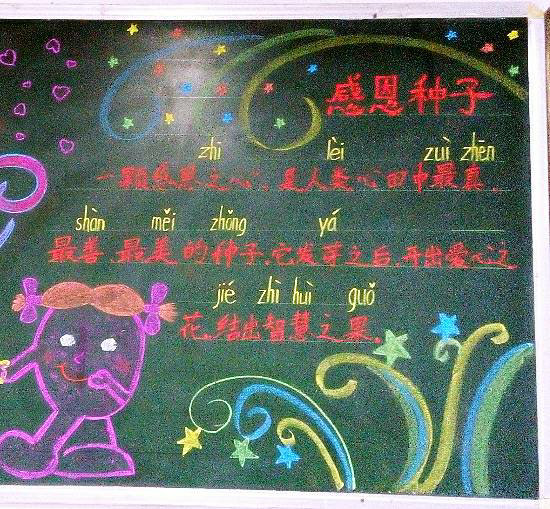 感恩种子
zhī lèi zuì zhēn
一颗感恩之心，是人类心田中最真、
shàn měi zhǒng yá
最善、最美的种子，它发芽之后，开出爱心之
jié zhì huì guǒ
花，结出智慧之果。